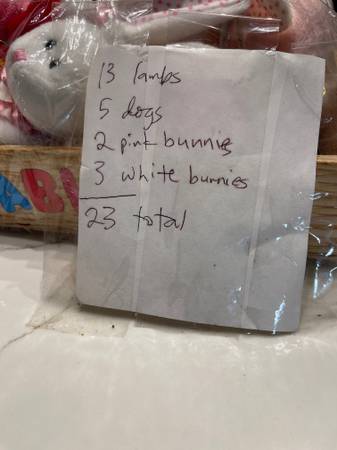 13 lambs
5 dogs
2 pink bunnies
3 white bunnies
23 total
AB